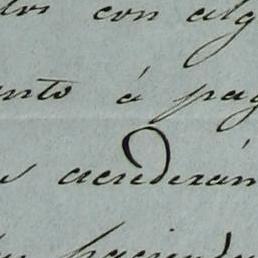 con alg
nto á pag
s accederán
haciend